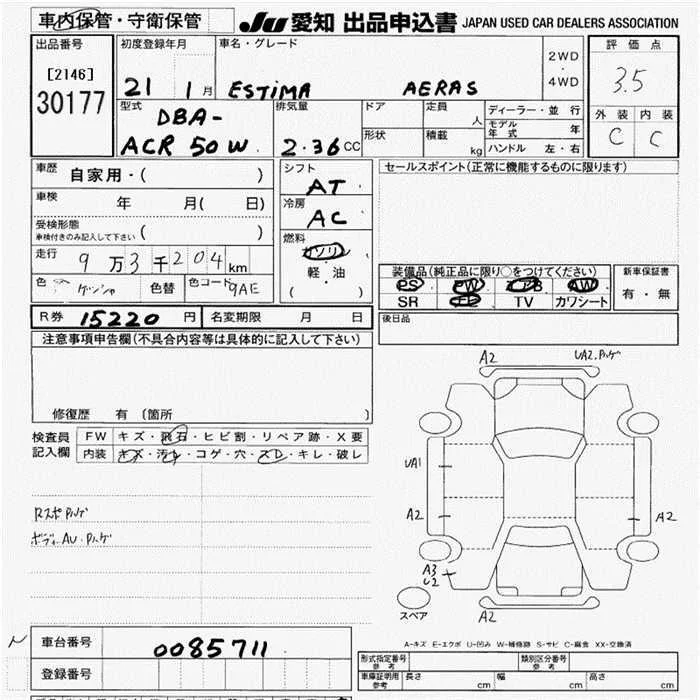 車内保管・守衛保管
JU 愛知 出品申込書 JAPAN USED CAR DEALERS ASSOCIATION
出品番号 初度登録年月 車名・グレード 2WD・4WD 評価点
[2146] 21 1月 ESTIMA AERAS 3.5
30177
型式 排気量 ドア 定員 人 ディーラー・並行 外装 内装
DBA- モデル年式 年 C C
ACR 50W 2.36CC 形状 積載 kg ハンドル 左・右
車歴 自家用・( ) シフト AT セールスポイント(正常に機能するものに限ります)
車検 年 月( 日) 冷房 AC
受検形態
車検付きのみ記入して下さい ( ) 燃料 ガソリン
走行 9万3千204km 軽・油
色 色替 色コード 9AE ( )
装備品(純正品に限り○をつけてください) 新車保証書
PS PW AB AW 有・無
SR TV カワシート
R券 15220円 名変期限 月 日 後日品
注意事項申告欄(不具合内容等は具体的に記入して下さい)
修復歴 有 〔箇所
検査員記入欄 FW キズ・飛石・ヒビ割・リペア跡・X要
内装 キズ・汚れ・コゲ・穴・スレ・キレ・破レ
A2
UA1
A2 A2
A3
U2
A2
スペア
A-キズ E-エクボ U-凹み W-補修跡 S-サビ C-腐食 XX-交換済
車台番号 0085711
登録番号
形式指定番号 参考 類別区分番号 参考
車庫証明用 参考 長さ cm 幅 cm 高さ cm